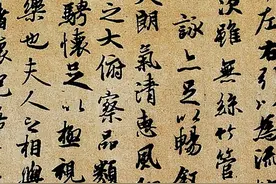 左右引以為流
次雖無絲竹管
詠亦足以暢叙
天朗氣清惠風
之大俯察品類
騁懷足以極視
樂也夫人之相與
懷